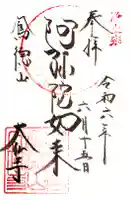 奉拝
令和六年
六月十五日
阿弥陀如来
鳳徳山
大仙寺